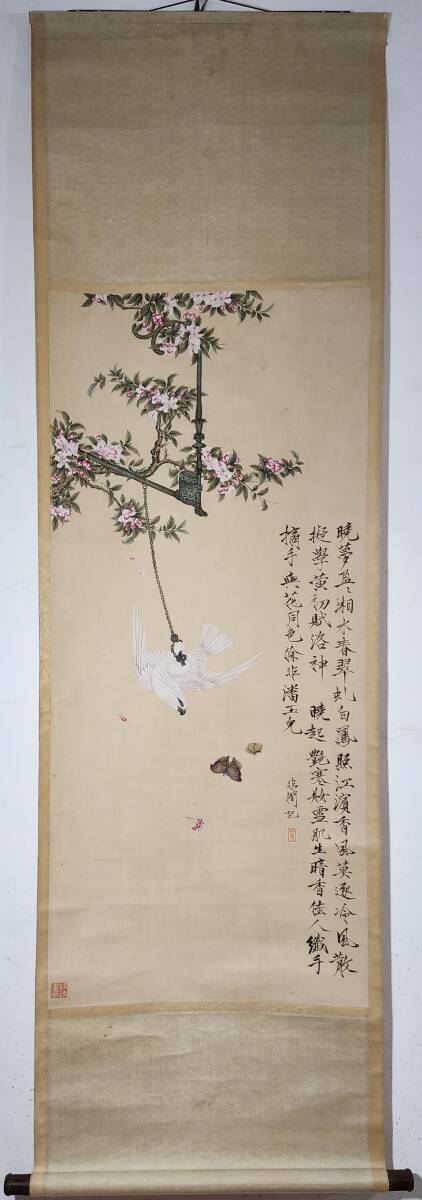 曉夢盈〻湘水春翠虬白鳳照江濱香風莫逐冷風散
擬學黃初賦洛神　曉起艷寒妝雪肌生暗香佳人纖手
摘手與花同色除非潘玉兒
非闇記